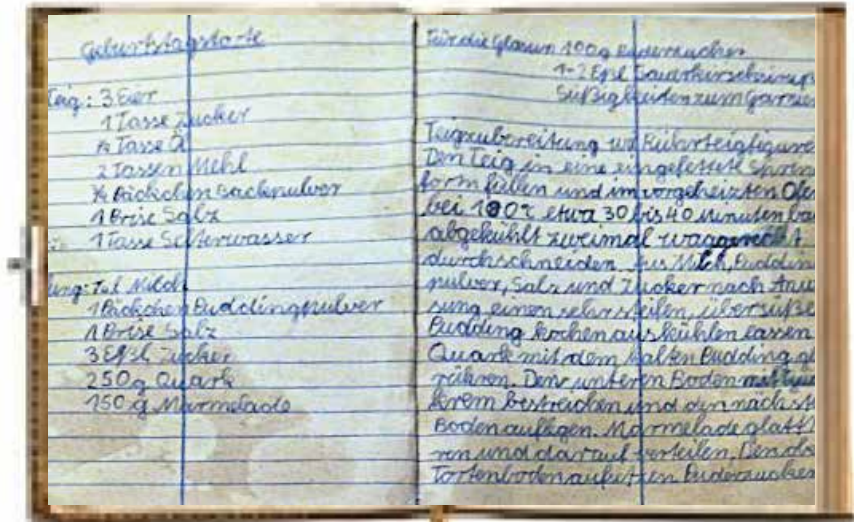 Geburtstagstorte
Teig: 3 Eier
1 Tasse Zucker
½ Tasse Öl
2 Tassen Mehl
½ Päckchen Backpulver
1 Prise Salz
1 Tasse Selterwasser
ung: Milch
1 Päckchen Puddingpulver
1 Prise Salz
3 Eßl Zucker
250 g Quark
150 g Marmelade
Für die Glasur: 100 g Puderzucker
1-2 Eßl Sauerkirsch
Süßigkeiten zum Garnier
Teigzubereitung Rührteig
Den Teig in eine eingefettete Sprin
form füllen und im vorgeheizten Ofe
bei etwa 30 bis 40 Minuten ba
abgekühlt zweimal waagerecht
durchschneiden. Aus Milch, Puddin
pulver, Salz und Zucker nach Anw
sung einen sehr steifen, übersüße
Pudding kochen auskühlen lassen
Quark mit dem kalten Pudding gl
rühren. Den unteren Boden mit
krem bestreichen und den nächst
Boden auflegen. Marmelade glatt
ren und darauf verteilen. Den
Tortenboden aufsetzen Puderzucker